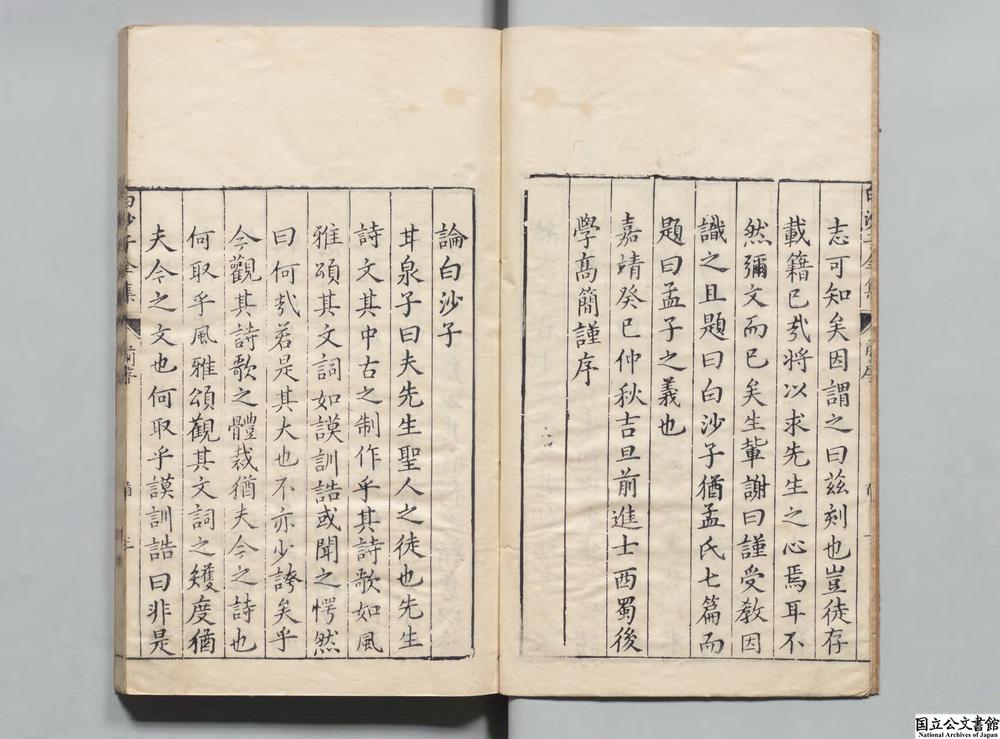 志可知矣因謂之曰茲刻也豈徒存
載籍已哉將以求先生之心焉耳不
然彌文而已矣生軰謝曰謹受教因
識之且題曰白沙子猶孟氏七篇而
題曰孟子之義也
嘉靖癸巳仲秋吉旦前進士西蜀後
學髙簡謹序
論白沙子
甘泉子曰夫先生聖人之徒也先生
詩文其中古之制作乎其詩歌如風
雅頌其文詞如謨訓誥或聞之愕然
曰何哉若是其大也不亦少誇矣乎
今觀其詩歌之體裁猶夫今之詩也
何取乎風雅頌觀其文詞之矱度猶
夫今之文也何取乎謨訓誥曰非是
白沙子全集
前序
国立公文書館
National Archives of Japan